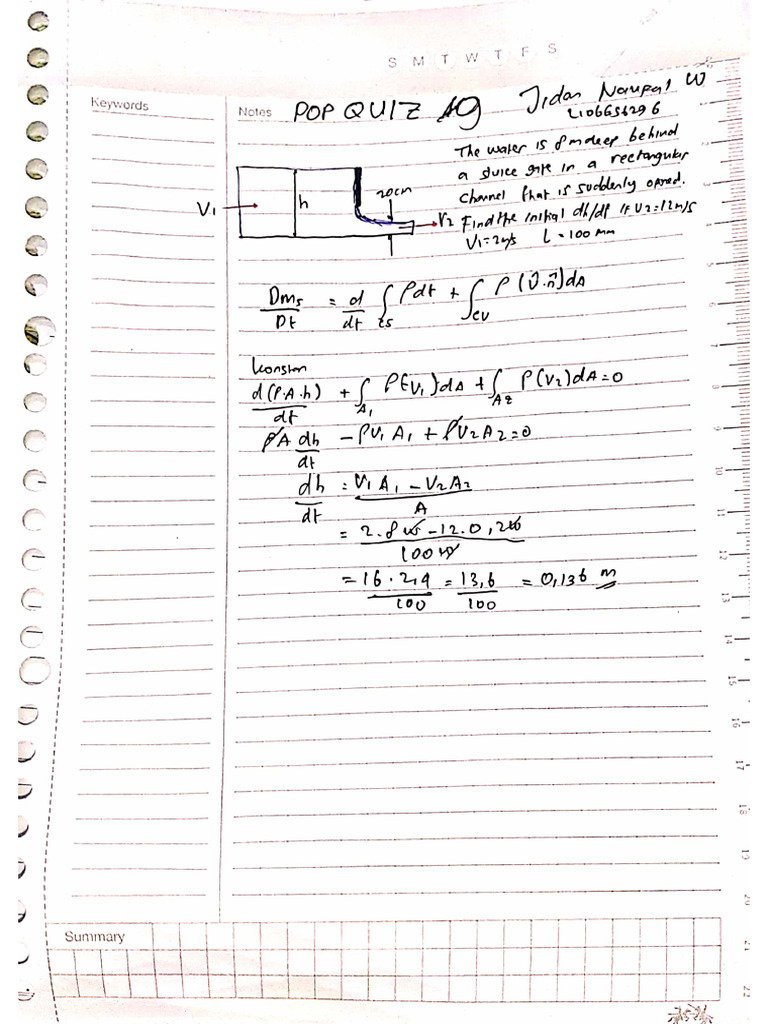 S M T W T F S
Keywords
Notes POP QUIZ 19 Jidan Naupal W
2106656296
The water is 8 m deep behind
a sluice gate in a rectangular
channel that is suddenly opened.
Find the initial dh/dt if V2=12m/s
V1=2m/s L=100 mm
20cm
V1
h
V2
Dms/Dt = d/dt ∫cs ρdt + ∫cv ρ(V̂·n̂)dA
konstan
d(ρ.A.h)/dt + ∫A1 ρ(-V1)dA + ∫A2 ρ(V2)dA=0
ρA dh/dt - ρV1A1 + ρV2A2=0
dh/dt = V1A1 - V2A2/A
= 2.8w - 12.0,2w/100w
= 16 - 2,4/100 = 13,6/100 = 0,136 m
Summary
2
3
4
5
6
7
8
9
10
11
12
13
14
15
16
17
18
19
20
21
22